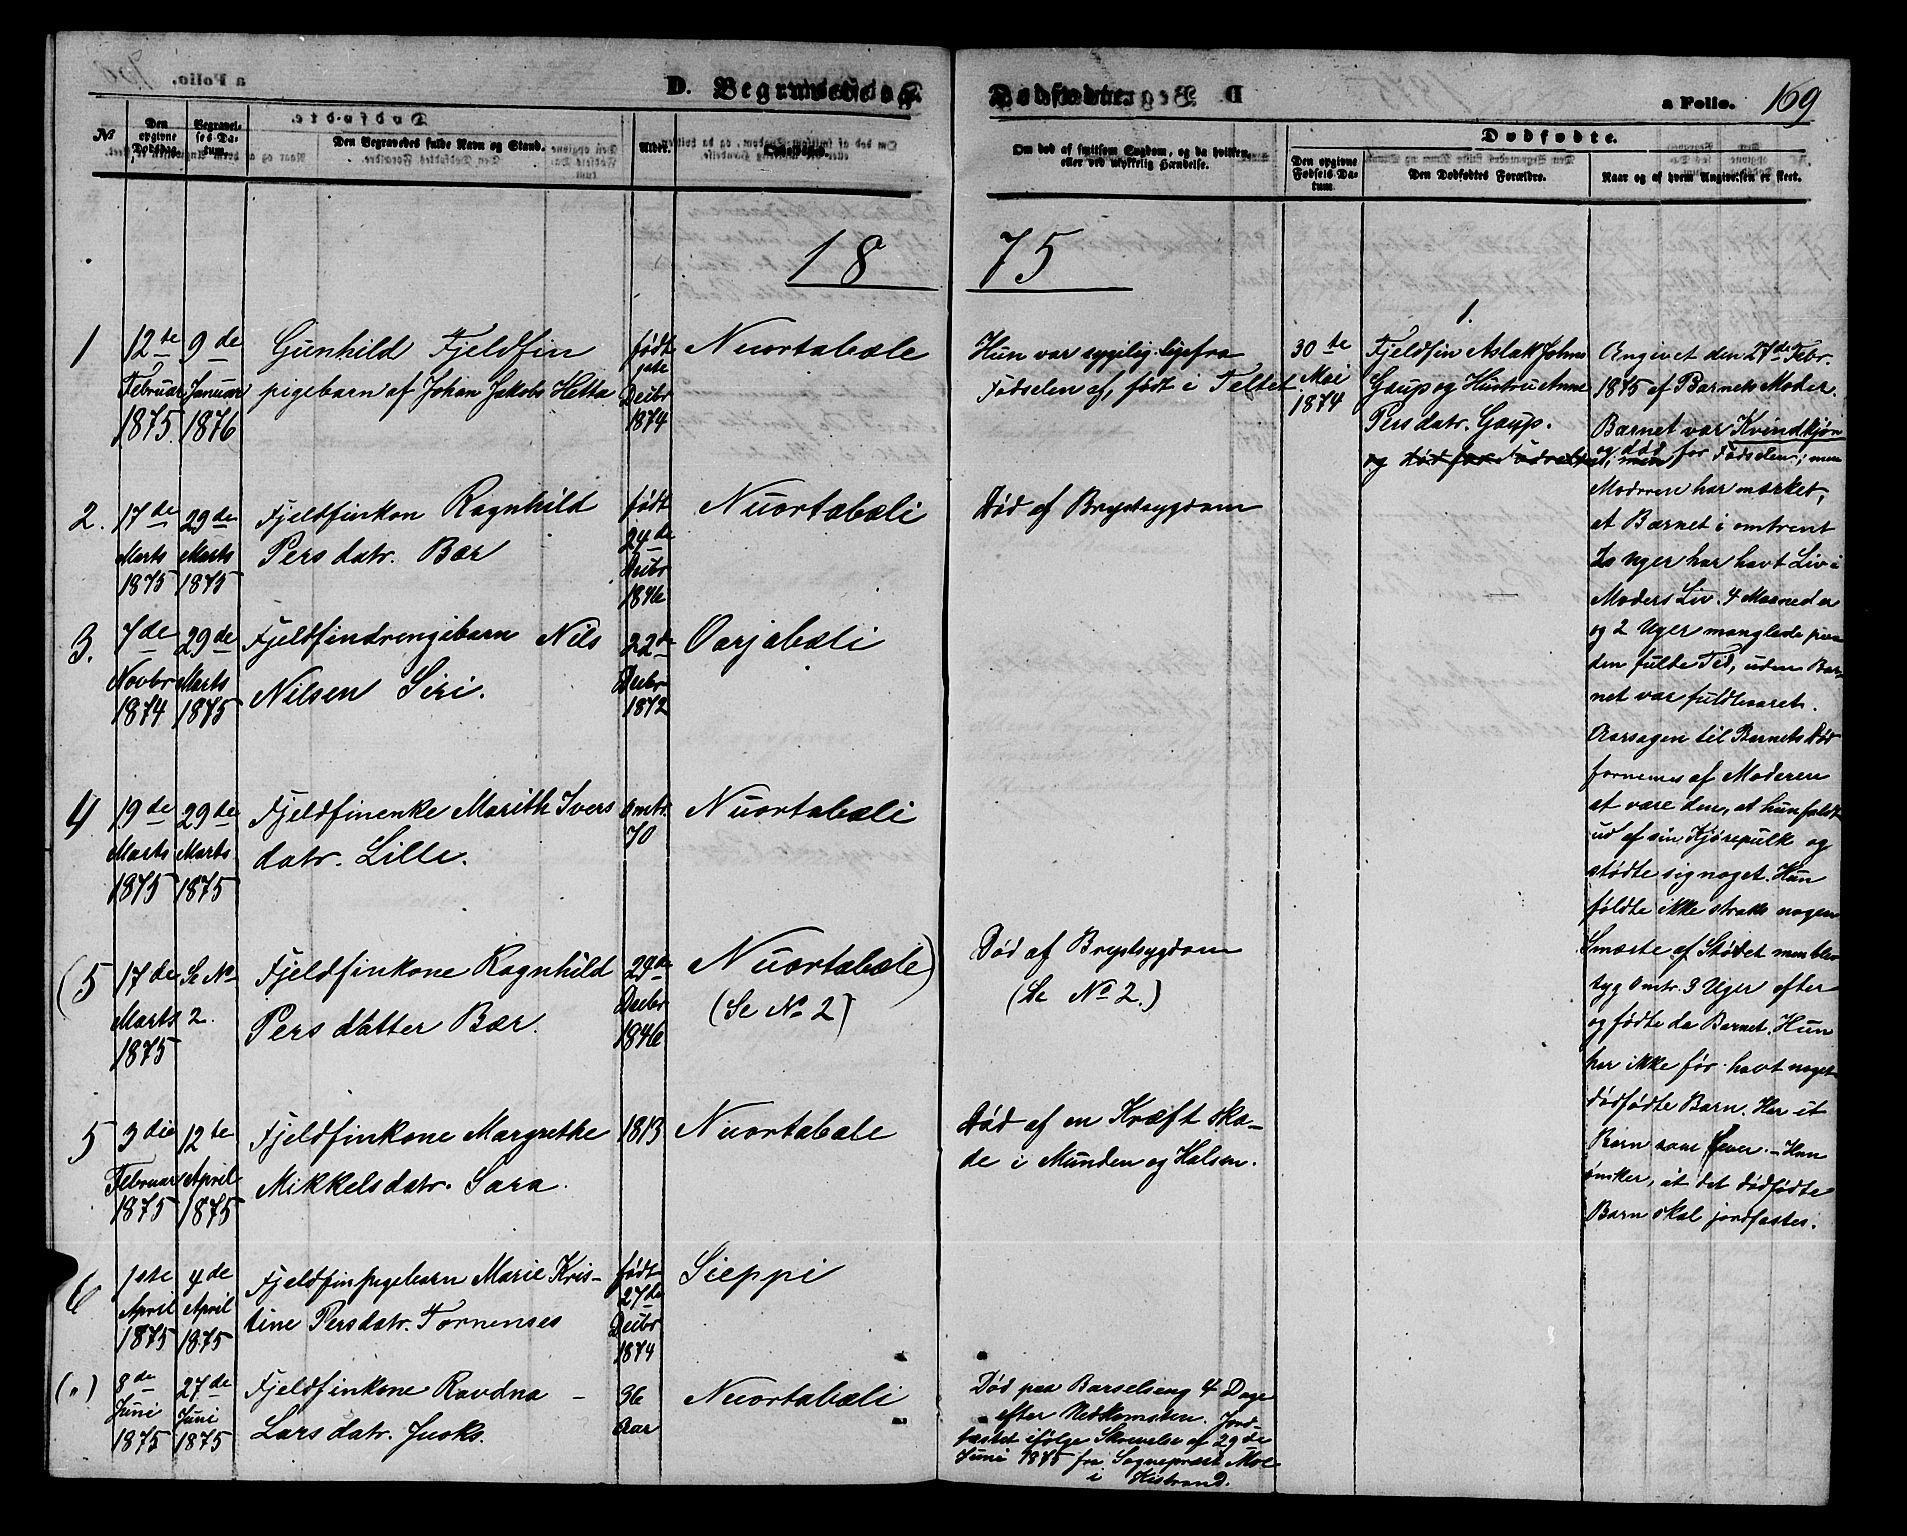 D. Begravede og Dødfødte.
a Folio. 169
№
Den opgivne Dødsdag.
Begravelses-Datum.
Den Begravedes fulde Navn og Stand.
Alder.
Opholdssted.
Om død af smitsom Sygdom, og da hvilken, eller ved ulykkelig Hændelse.
Dødfødte.
Den opgivne Fødsels-Datum.
Den Dødfødtes Forældre.
Naar og af hvem Angivelsen er skeet.
18 75
1
12te Februar 1875
9de Januar 1876
Gunhild Fjeldfin
pigebarn af Johan Jakobs Hetta
født
Decbr
1874
Nuortabæle
Hun var sygelig ligefra
Fødselen af, født i Teltet
2. 17de Marts 1875
29de Marts 1875
Fjeldfinkon Ragnhild
Persdatr. Bær
født
24de
Decbr
1846
Nuortabæli
Død af Brystsygdom
3. 7de Novbr 1874
29de Marts 1875
Fjeldfindrengebarn Nils
Nilsen Siri.
22de
Decbr
1872
Oarjabæli
4 19de Marts 1875
29de Marts 1875
Fjeldfinenke Marith Ivers
datr. Lille.
Omtr.
70
Nuortabæli
(5 17de Marts 1875
Se No 2.
Fjeldfinkone Ragnhild
Persdatter Bær.
24de
Decbr
1846
Nuortabæle)
(Se No 2)
Død af Brystsygdom
(Se No 2.)
5 3die Februar 1875
12te April 1875
Fjeldfinkone Margrethe
Mikkelsdatr. Sara.
1813
Nuortabæle
Død af en Kræftska-
de i Munden og Halsen.
6 1ste April 1875
4de April 1875
Fjeldfinpigebarn Marie Kris-
tine Persdatr. Fornenses
født
27de
Decbr
1874
Sieppi
(,,) 8de Juni 1875
27de Juni 1875
Fjeldfinkone Ravdna -
Larsdatr. Juoks.
36
Aar
Nuortabæli
Død paa Barselseng 4 Dage
efter Nedkomsten. Jord-
fæstet ifølge Skrivelse af 29de
Juni 1875 fra Sognepræst Moe
i Kistrand.
1.
30te
Mai
1874
Fjeldfin Aslak Johns
Gaup og Hustru Anne
Persdatr. Gaup.
og død før Fødselen, men
Angivet den 27de Febr.
1875 af Barnets Moder.
Barnet var Kvindkjøn
og død før Fødselen; men
Moderen har mærket,
at Barnet i omtrent
Uger har havt Liv i
Moders Liv. 4 Maaneder
og 2 Uger manglede paa
den fulde Tid, uden Bar-
net var fuldbaaret.
Aarsagen til Barnets Død
fornemes af Moderen
at være den, at hun faldt
ud af sin Kjørepulk og
stødte sig noget. Hun
følte ikke straks nogen
Smærte af Stødet men blev
syg omtr. 3 Uger efter
og fødte da Barnet. Hun
har ikke før havt noget
dødfødte Barn. Har et
Barn som lever. - Hun
ønsker, at det dødfødte
Barn skal jordfæstes.